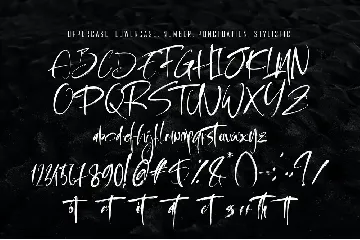 UPPERCASE, LOWERCASE, NUMBERS, PUNCTUATION, STYLISTIC
ABCDEFGHIJKLMN
OPQRSTUVWXYZ
abcdefghijklmnopqrstuvwxyz
1234567890!@#$%&*()-:;.,?/